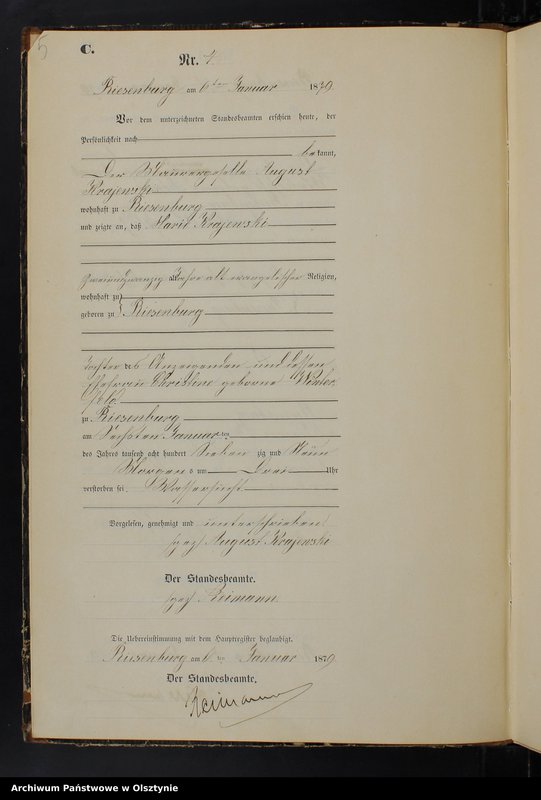 5
C.
Nr. 7.
Riesenburg am 6ten Januar 1879.
Vor dem unterzeichneten Standesbeamten erschien heute, der
Persönlichkeit nach
bekannt,
Der Maurergeselle August
Krajewski
wohnhaft zu Riesenburg
und zeigte an, daß Marie Krajewski
zweiundzwanzig Jahre alt evangelischer Religion,
wohnhaft zu
geboren zu Riesenburg
Tochter des Anzeigenden und dessen
Ehefrau Christine geborne
zu Riesenburg
am Sechsten Januar
des Jahres tausend acht hundert Sieben zig und Neun
Morgens um Drei Uhr
verstorben sei. Wassersucht
Vorgelesen, genehmigt und unterschrieben
gez August Krajewski
Der Standesbeamte.
gez Reimann.
Die Uebereinstimmung mit dem Hauptregister beglaubigt.
Riesenburg am 6 ten Januar 1879
Der Standesbeamte.
Reimann
Archiwum Państwowe w Olsztynie